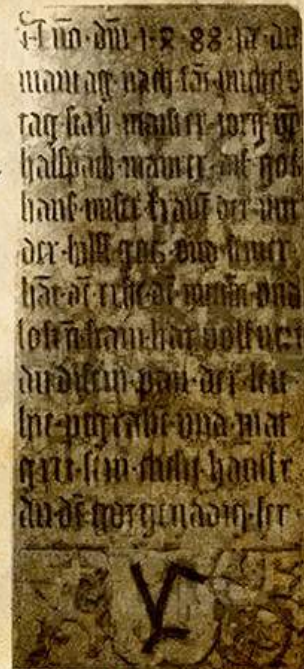 Año · dm̄ · 1 · 4 · 88 · ja · an
mantag · nach · sāt · michels
tag · starb · maister · iorg · vō
halspach · maurer · dis · gotz
haus · vnser · fraun · der · mit
der · hilff · gotz · vnd · seiner
hāt · dē · erst · dē · vnd
stain · hat · volfurt
an · disem · pau · der · leit
hie · pegrabn · vnd · mar
gret · sein · elichi · hausfr
au · dē · got · genadig · sei